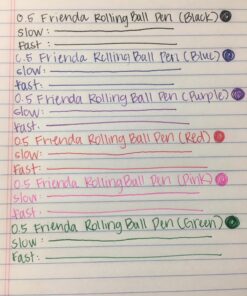 0.5 Frienda Rolling Ball Pen (Black)
Slow:
Fast:
0.5 Frienda Rolling Ball Pen (Blue)
slow:
fast:
0.5 Frienda Rolling Ball Pen (Purple)
slow:
fast.
0.5 Frienda Rolling Ball Pen (Red)
slow:
fast:
0.5 Frienda Rolling Ball Pen (Pink)
slow:
fast:
0.5 Frienda Rolling Ball Pen (Green)
slow:
Fast: